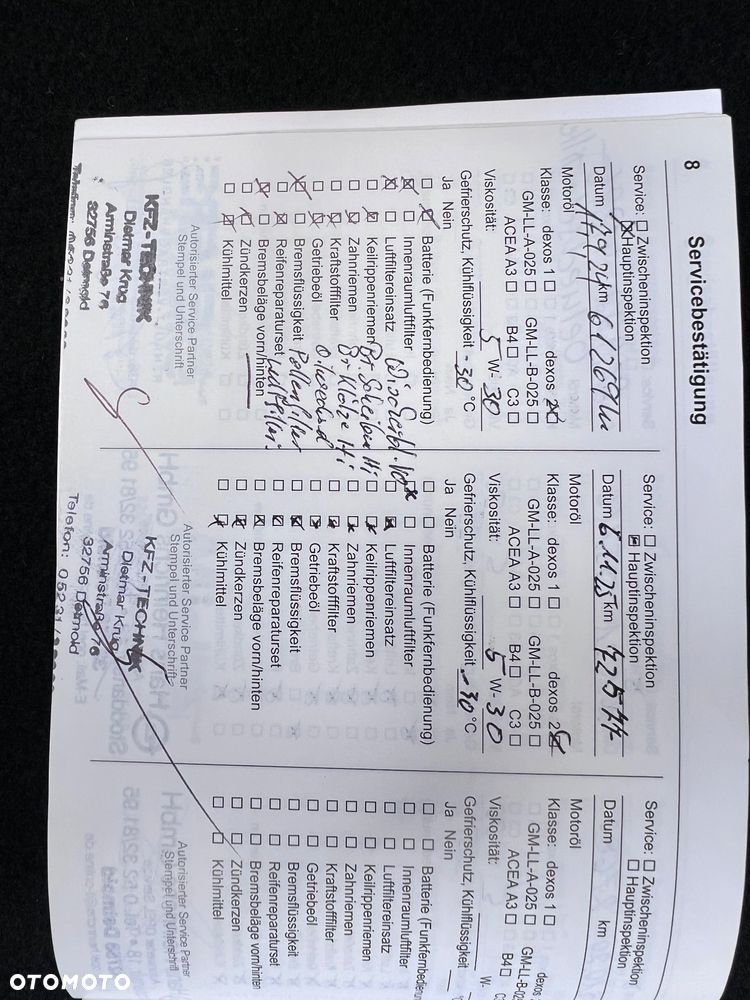 8
Servicebestätigung
Service: Zwischeninspektion
Hauptinspektion
Datum km 61269
Motoröl
Klasse: dexos 1 dexos 2
GM-LL-A-025 GM-LL-B-025
ACEA A3 B4 C3
Viskosität: 5 W- 30
Gefrierschutz, Kühlflüssigkeit -30 °C
Ja Nein
Batterie (Funkfernbedienung)
Innenraumluftfilter
Luftfiltereinsatz
Keilrippenriemen
Zahnriemen
Kraftstofffilter
Getriebeöl
Bremsflüssigkeit Pollenfilter
Reifenreparaturset
Bremsbeläge vorn/hinten
Zündkerzen
Kühlmittel
Autorisierter Service Partner
Stempel und Unterschrift
KFZ-TECHNIK
Dietmar Krug
Arminstraße 76
32756 Detmold
Service: Zwischeninspektion
Hauptinspektion
Datum 6.11.25 km
Motoröl
Klasse: dexos 1 dexos 2
GM-LL-A-025 GM-LL-B-025
ACEA A3 B4 C3
Viskosität: 5 W- 30
Gefrierschutz, Kühlflüssigkeit -30 °C
Ja Nein
Batterie (Funkfernbedienung)
Innenraumluftfilter
Luftfiltereinsatz
Keilrippenriemen
Zahnriemen
Kraftstofffilter
Getriebeöl
Bremsflüssigkeit
Reifenreparaturset
Bremsbeläge vorn/hinten
Zündkerzen
Kühlmittel
Autorisierter Service Partner
Stempel und Unterschrift
KFZ-TECHNIK
Dietmar Krug
Arminstraße 76
32756 Detmold
Telefon: 05231
Service: Zwischeninspektion
Hauptinspektion
Datum km
Motoröl
Klasse: dexos 1 dexos
GM-LL-A-025 GM-LL-B
ACEA A3 B4 C3
Viskosität: W-
Gefrierschutz, Kühlflüssigkeit °C
Ja Nein
Batterie (Funkfernbedienung
Innenraumluftfilter
Luftfiltereinsatz
Keilrippenriemen
Zahnriemen
Kraftstofffilter
Getriebeöl
Bremsflüssigkeit
Reifenreparaturset
Bremsbeläge vorn/hinten
Zündkerzen
Kühlmittel
Autorisierter Service Partner
Stempel und Unterschrift
OTOMOTO